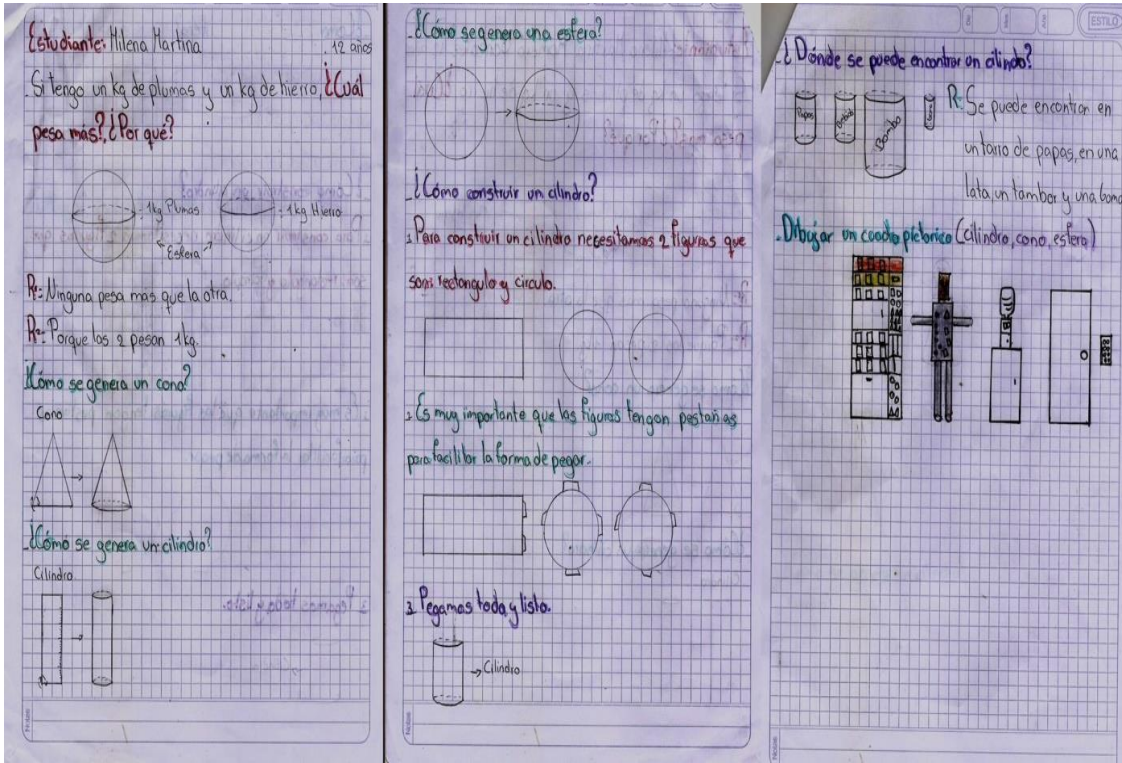 Estudiante: Milena Martina . 12 años
. Si tengo un kg de plumas y un kg de hierro, ¿Cuál
pesa más?, ¿Por qué?
1kg Plumas
1kg Hierro
Esfera
R1: Ninguna pesa mas que la otra.
R2: Porque los 2 pesan 1kg.
¿Cómo se genera un cono?
Cono
¿Cómo se genera un cilindro?
Cilindro
Notas
¿Cómo se genera una esfera?
¿Cómo construir un cilindro?
1 Para construir un cilindro necesitamos 2 figuras que
son: rectangulo y circulo.
2 Es muy importante que las figuras tengan pestañas
para facilitar la forma de pegar.
3 Pegamos todo y listo.
Cilindro
Notas
ESTILO
¿Dónde se puede encontrar un cilindro?
Papas
Bombo
R: Se puede encontrar en
un tarro de papas, en una
lata un tambor y una
. Dibujar un cuadro (cilindro, cono, esfera)
Notas